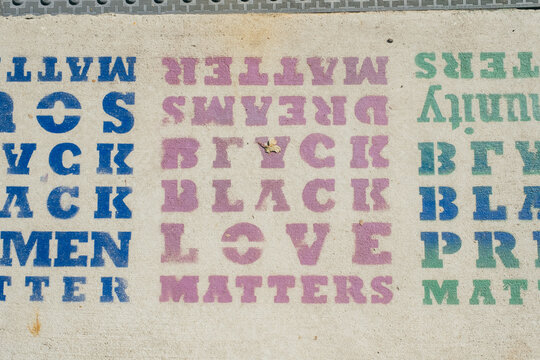 MATT
OS
ACK
ACK
MEN
TTER
MATTER
DREAMS
BLACK
BLACK
LOVE
MATTERS
TERS
munity
BL
BLA
PR
MAT